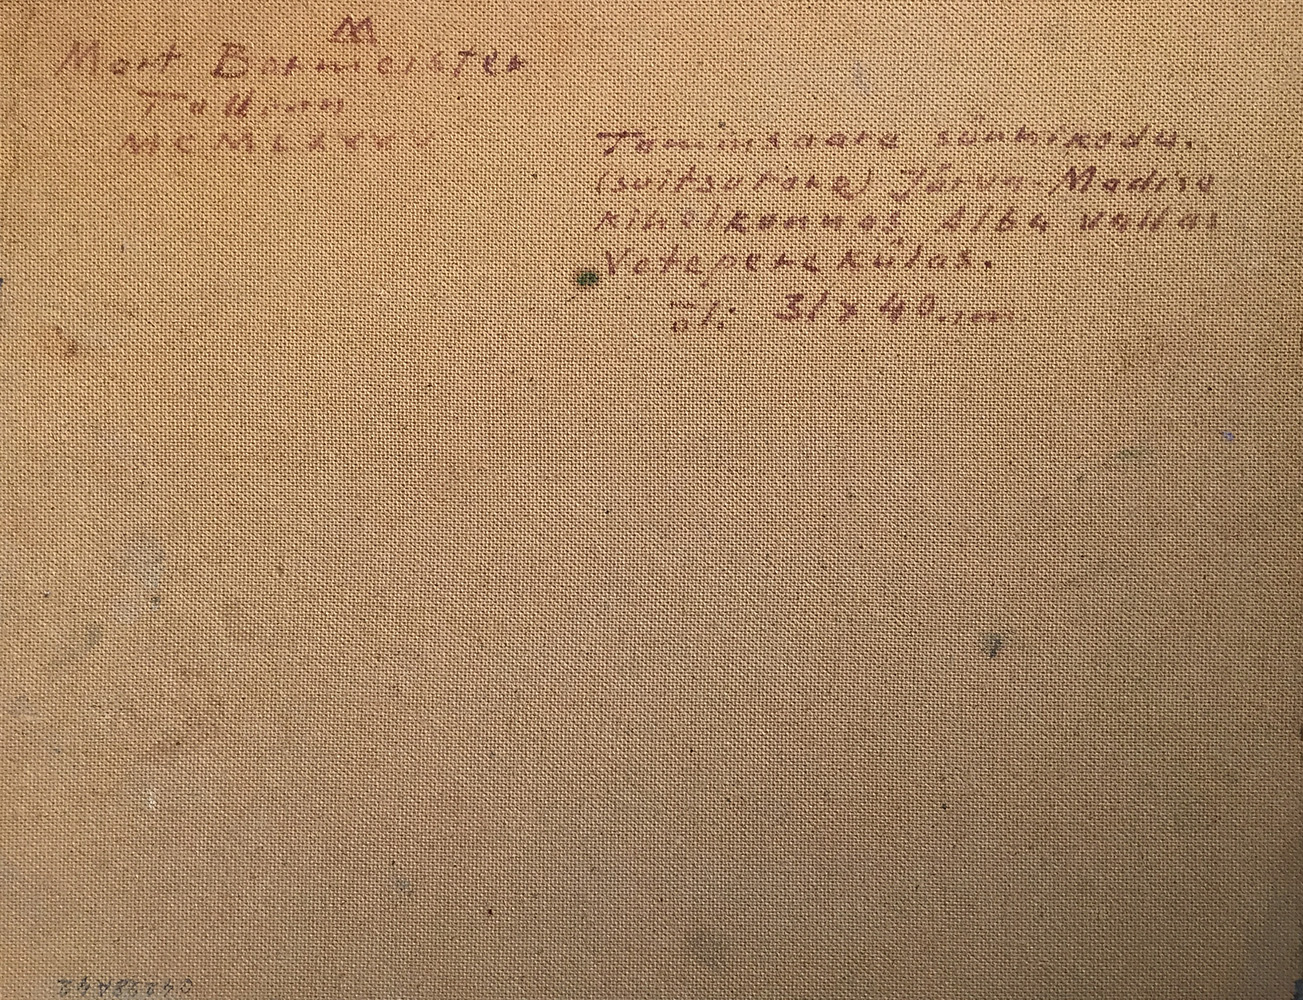 M
Mart Bormeister
Tallinn
MCMLXXXV
Tammsaare sünnikodu.
(suitsutare) Järva-Madise
kihelkonnas Alba vallas
Vetepere külas.
õli 31 x 40